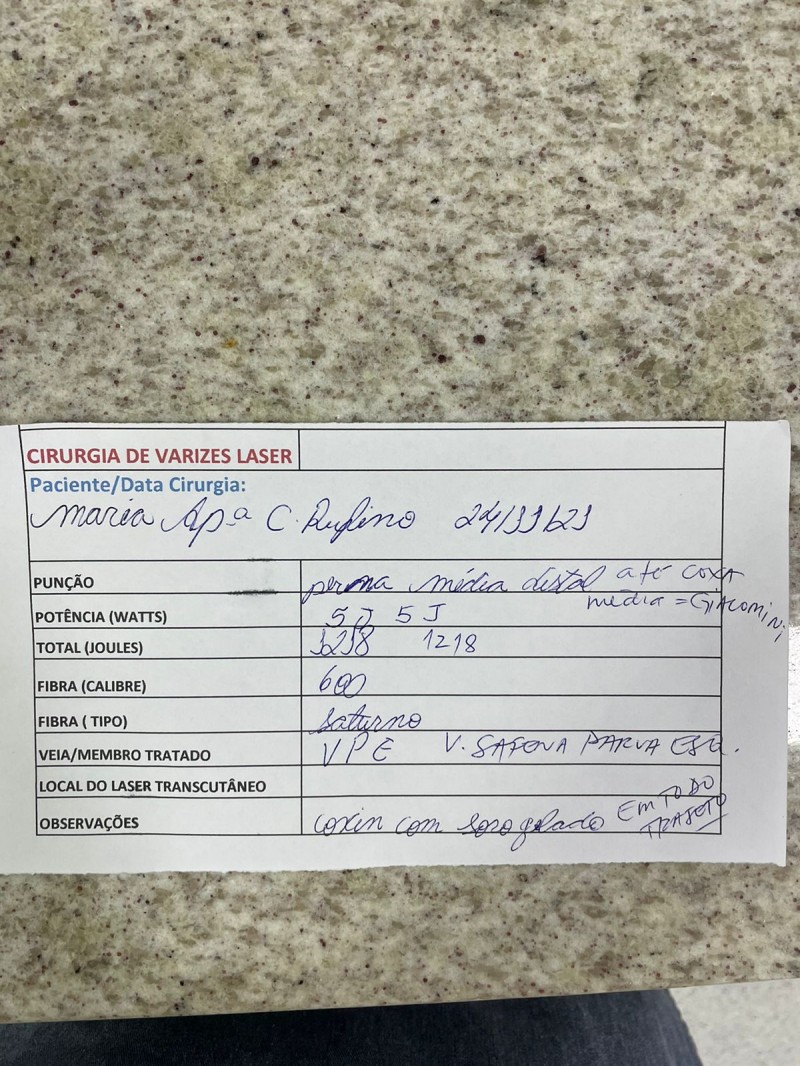 CIRURGIA DE VARIZES LASER
Paciente/Data Cirurgia:
Maria Apª C. Rufino 24/11/23
PUNÇÃO perna média distal até coxa
média = GIACOMINI
POTÊNCIA (WATTS) 5J 5J
TOTAL (JOULES) 1218
FIBRA (CALIBRE) 600
FIBRA ( TIPO) Saturno
VEIA/MEMBRO TRATADO VPE V. SAFENA PARVA ESQ.
LOCAL DO LASER TRANSCUTÂNEO
OBSERVAÇÕES coxin com soro gelado EM TODO
TRAJETO